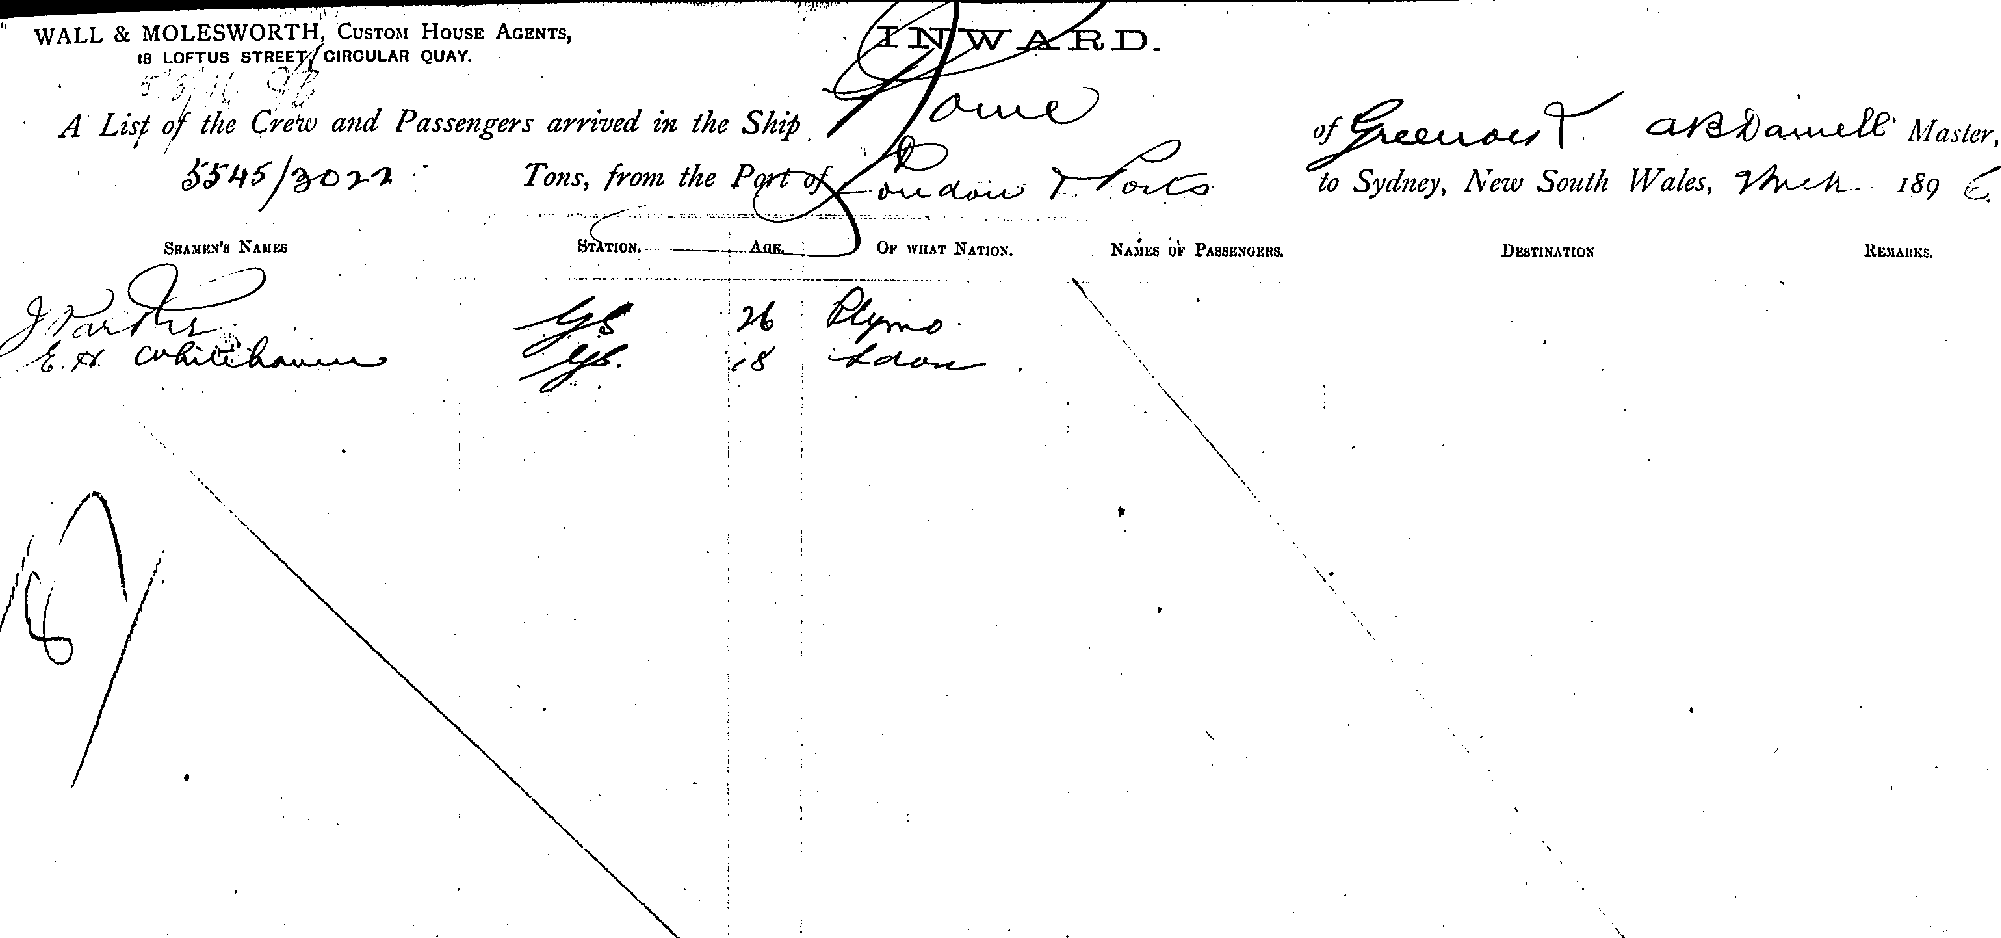 WALL & MOLESWORTH, CUSTOM HOUSE AGENTS,
18 LOFTUS STREET, CIRCULAR QUAY.
INWARD.
A List of the Crew and Passengers arrived in the Ship Rome of Greenock AB Daniell Master,
5545/3022 Tons, from the Port of London & Ports to Sydney, New South Wales, March 1896
SEAMEN'S NAMES STATION. AGE. OF WHAT NATION. NAMES OF PASSENGERS. DESTINATION REMARKS.
J Parker GS 26 Plymo
E. H Whitehaven GS. 18 Ldon
87